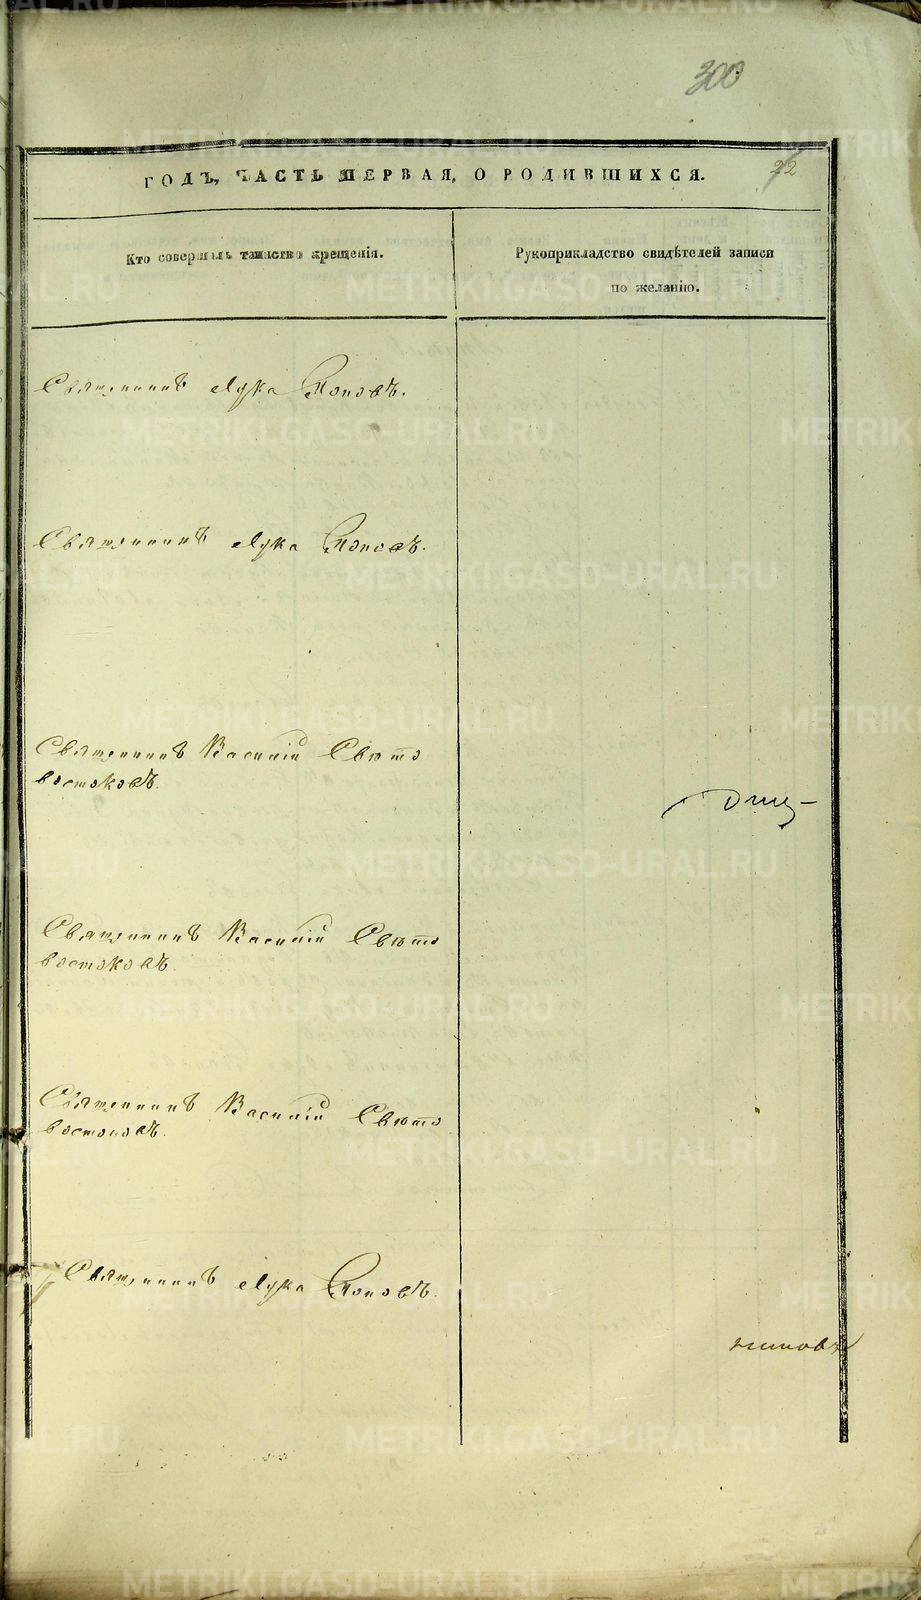 300
ГОДЪ, ЧАСТЬ ПЕРВАЯ, О РОДИВШИХСЯ.
22
Кто совершалъ таинство крещенія.
Рукоприкладство свидѣтелей записи
по желанію.
Священникъ Лука Поповъ.
Священникъ Лука Поповъ.
Священникъ Василій Свѣто
востоковъ.
Священникъ Василій Свѣто
востоковъ.
Священникъ Василій Свѣто
востоковъ.
Священникъ Лука Поповъ.
METRIKI.GASO-URAL.RU